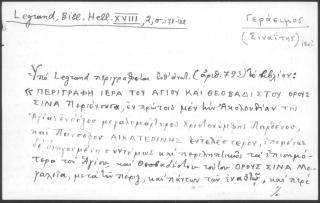 Legrand, Bibl. Hell. XVIII, 2, σ. 78-128
Γεράσιμος
(Σιναΐτης)
Ὑπὸ Legrand περιγράφεται (ἀριθ. 793) τὸ βιβλίον:
«ΠΕΡΙΓΡΑΦΗ ΙΕΡΑ ΤΟΥ ΑΓΙΟΥ ΚΑΙ ΘΕΟΒΑΔΙΣΤΟΥ ΟΡΟΥΣ
ΣΙΝΑ Περιέχουσα, ἐν πρώτοις μὲν τὴν Ἀκολουθίαν τῆς
Ἁγίας ἐνδόξου μεγαλομάρτυρος Χριστονύμφης Παρθένου,
καὶ Πανσόφου ΑΙΚΑΤΕΡΙΝΗΣ ἐντελέστερον, ἑπομένως
δὲ διηγουμένη συντόμως καὶ περιληπτικῶς τὰ ἐπισημό-
τερα τοῦ Ἁγίου, καὶ Θεοβαδίστου τούτου ΟΡΟΥΣ ΣΙΝΑ Μο-
ναστηρία, μετὰ τῶν πέριξ, καὶ πάντων τῶν ἐν αὐτῷ, καὶ περὶ